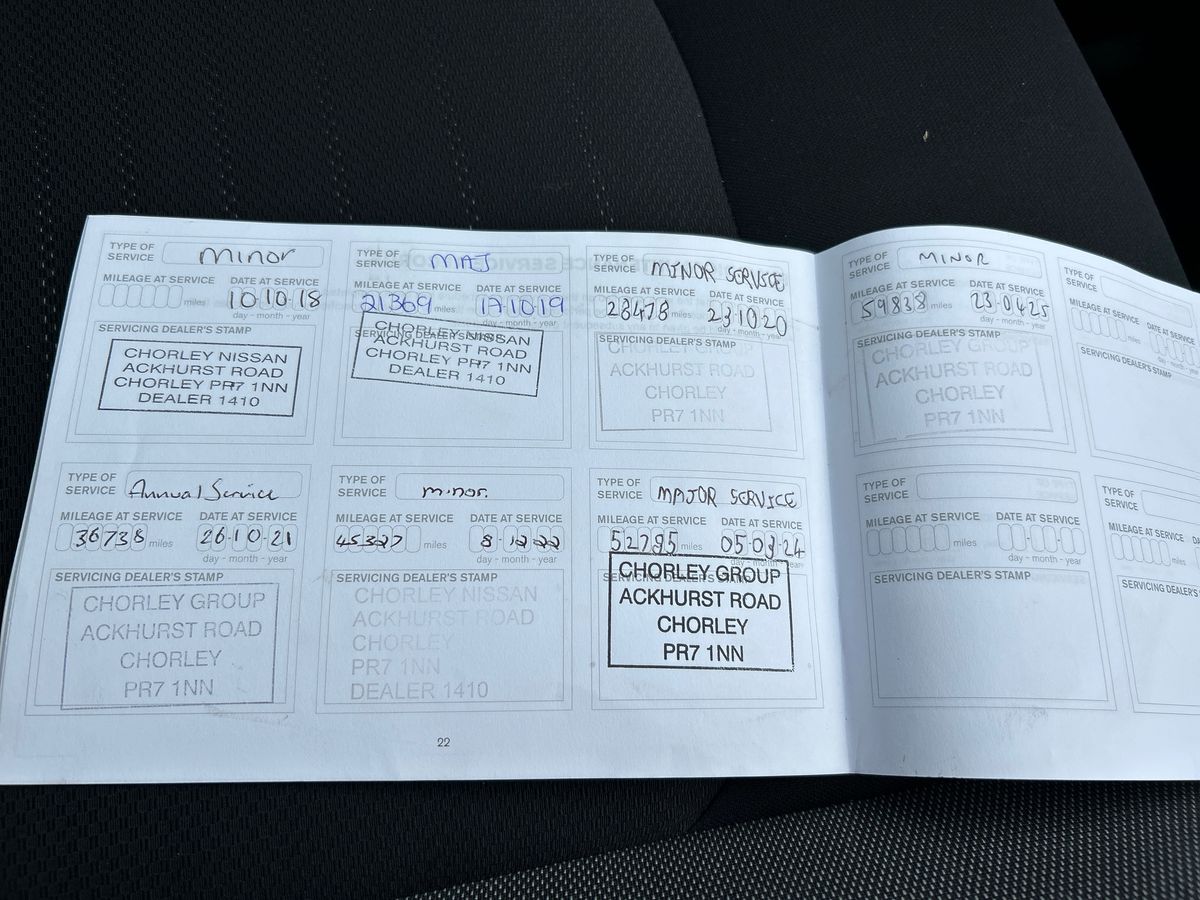 TYPE OF SERVICE Minor
MILEAGE AT SERVICE DATE AT SERVICE
miles 10·10·18
day - month - year
SERVICING DEALER'S STAMP
CHORLEY NISSAN
ACKHURST ROAD
CHORLEY PR7 1NN
DEALER 1410
TYPE OF SERVICE MAJ
MILEAGE AT SERVICE DATE AT SERVICE
21369 miles 17·10·19
day - month - year
SERVICING DEALER'S STAMP
CHORLEY NISSAN
ACKHURST ROAD
CHORLEY PR7 1NN
DEALER 1410
TYPE OF SERVICE MINOR SERVICE
MILEAGE AT SERVICE DATE AT SERVICE
28478 miles 23·10·20
day - month - year
SERVICING DEALER'S STAMP
CHORLEY GROUP
ACKHURST ROAD
CHORLEY
PR7 1NN
TYPE OF SERVICE MINOR
MILEAGE AT SERVICE DATE AT SERVICE
59838 miles 23·04·25
day - month - year
SERVICING DEALER'S STAMP
CHORLEY GROUP
ACKHURST ROAD
CHORLEY
PR7 1NN
TYPE OF SERVICE
MILEAGE AT SERVICE DATE AT SERVICE
miles
day - month - year
SERVICING DEALER'S STAMP
TYPE OF SERVICE Annual Service
MILEAGE AT SERVICE DATE AT SERVICE
36738 miles 26·10·21
day - month - year
SERVICING DEALER'S STAMP
CHORLEY GROUP
ACKHURST ROAD
CHORLEY
PR7 1NN
TYPE OF SERVICE minor.
MILEAGE AT SERVICE DATE AT SERVICE
45327 miles 8·12·22
day - month - year
SERVICING DEALER'S STAMP
CHORLEY NISSAN
ACKHURST ROAD
CHORLEY
PR7 1NN
DEALER 1410
TYPE OF SERVICE MAJOR SERVICE
MILEAGE AT SERVICE DATE AT SERVICE
52795 miles
day - month - year
SERVICING DEALER'S STAMP
CHORLEY GROUP
ACKHURST ROAD
CHORLEY
PR7 1NN
TYPE OF SERVICE
MILEAGE AT SERVICE DATE AT SERVICE
miles
day - month - year
SERVICING DEALER'S STAMP
TYPE OF SERVICE
MILEAGE AT SERVICE
miles
SERVICING DEALER'S
22